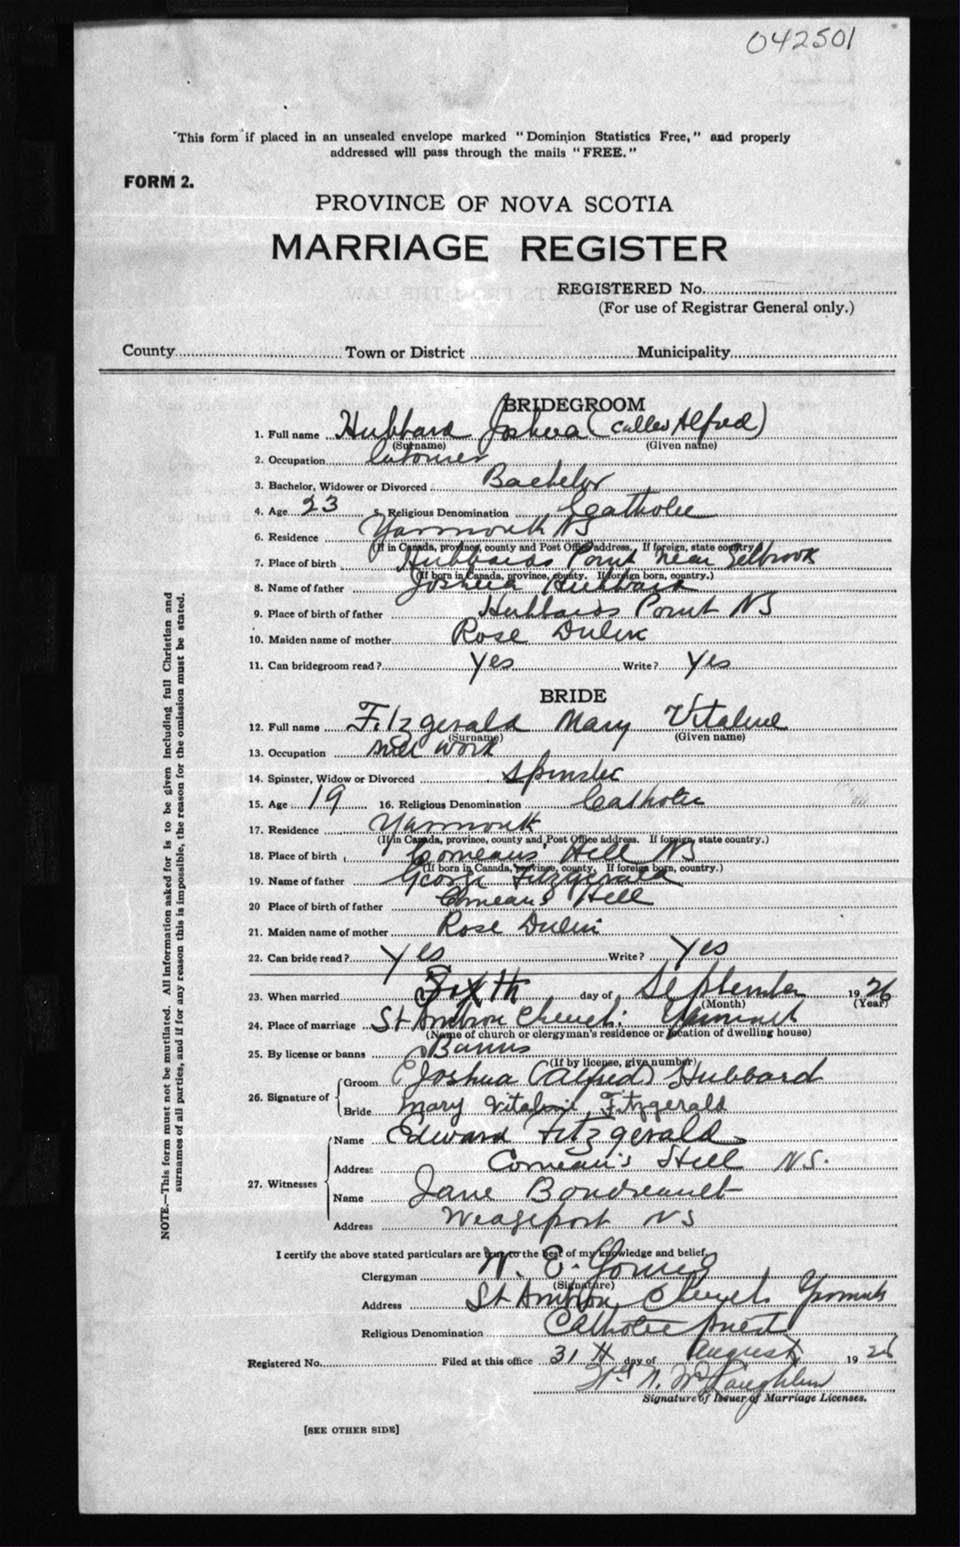 042501
"This form if placed in an unsealed envelope marked "Dominion Statistics Free," and properly
addressed will pass through the mails "FREE."
FORM 2.
PROVINCE OF NOVA SCOTIA
MARRIAGE REGISTER
REGISTERED No.
(For use of Registrar General only.)
County Town or District Municipality
BRIDEGROOM
1. Full name Hubbard Joshua (Called Alfred)
(Surname) (Given name)
2. Occupation labourer
3. Bachelor, Widower or Divorced Bachelor
4. Age 23 5. Religious Denomination Catholic
6. Residence Yarmouth NS
(If in Canada, province, county and Post Office address. If foreign, state country)
7. Place of birth Hubbards Point near
(If born in Canada, province, county. If foreign born, country.)
8. Name of father Joshua Hubbard
9. Place of birth of father Hubbards Point NS
10. Maiden name of mother Rose
11. Can bridegroom read? Yes Write? Yes
BRIDE
12. Full name Fitzgerald Mary Vitaline
(Surname) (Given name)
13. Occupation mill work
14. Spinster, Widow or Divorced Spinster
15. Age 19 16. Religious Denomination Catholic
17. Residence Yarmouth
(If in Canada, province, county and Post Office address. If foreign, state country.)
18. Place of birth Comeaus Hill NS
(If born in Canada, province, county. If foreign born, country.)
19. Name of father George Fitzgerald
20 Place of birth of father Comeaus Hill
21. Maiden name of mother Rose
22. Can bride read? Yes Write? Yes
23. When married Sixth day of September 1926
(Month) (Year)
24. Place of marriage St Ambrose Church Yarmouth
(Name of church or clergyman's residence or location of dwelling house)
25. By license or banns Banns
(If by license, give number)
26. Signature of Groom Joshua (Alfred) Hubbard
Bride Mary Vitaline Fitzgerald
27. Witnesses Name Edward Fitzgerald
Address Comeau's Hill N.S.
Name Jane Boudreault
Address Wedgeport NS
I certify the above stated particulars are true to the best of my knowledge and belief,
Clergyman W. E. Young
(Signature)
Address St Ambrose Church Yarmouth
Religious Denomination Catholic priest
Registered No. Filed at this office 31st day of August 1926
N. McLaughlin
Signature of Issuer of Marriage Licenses.
[SEE OTHER SIDE]
NOTE.—This form must not be mutilated. All information asked for is to be given including full Christian and
surnames of all parties, and if for any reason this is impossible, the reason for the omission must be stated.